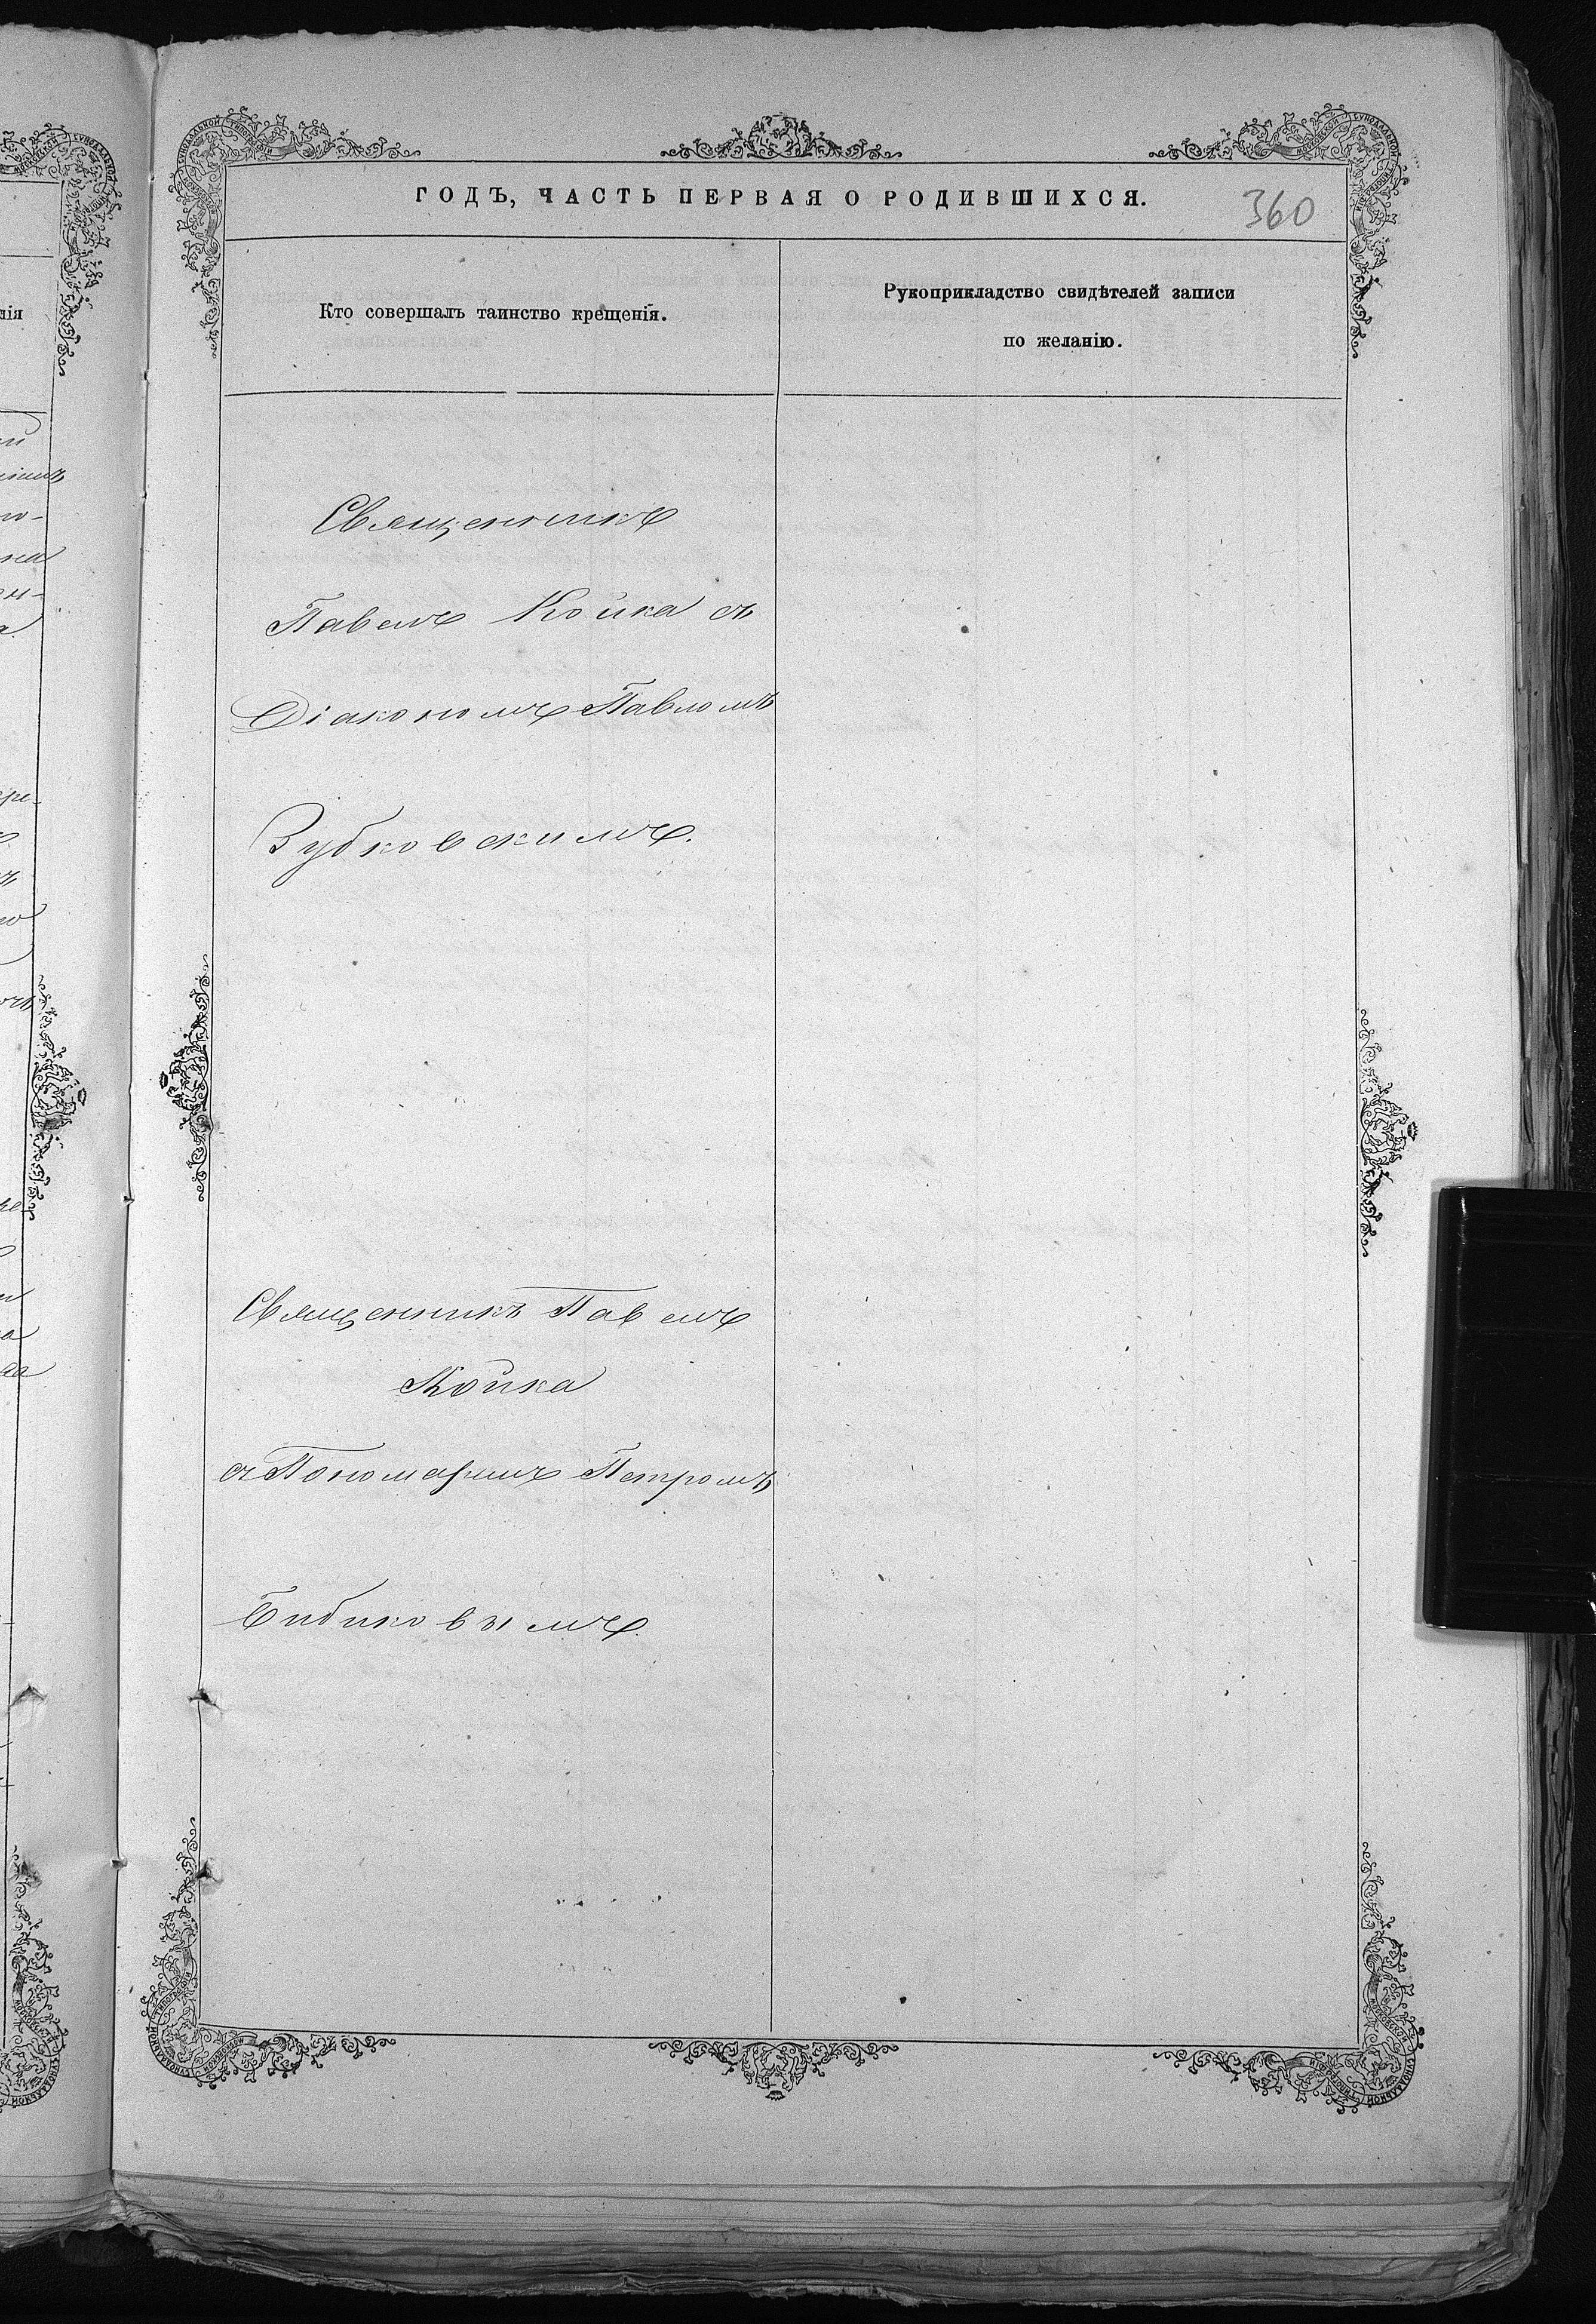 ГОДЪ, ЧАСТЬ ПЕРВАЯ О РОДИВШИХСЯ.
360
Кто совершалъ таинство крещенія.
Рукоприкладство свидѣтелей записи
по желанію.
Священникъ
Павелъ Койка съ
Діакономъ Павломъ
Зубковскимъ.
Священникъ Павелъ
Койка
съ Пономаремъ Петромъ
Бибиковымъ.